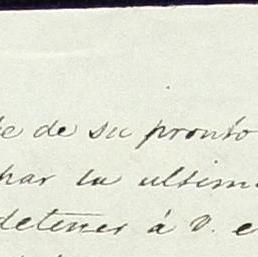 e de su pronto
har la ultim
detener á V. e